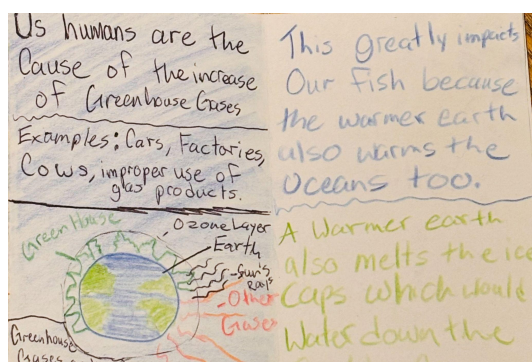 Us humans are the
Cause of the increase
of Greenhouse Gases
Examples: Cars, Factories,
Cows, improper use of
gas products.
GreenHouse
Ozone Layer
Earth
Sun's
Rays
Other
Gases
Greenhouse
Gases
This greatly impacts
Our Fish because
the warmer earth
also warms the
Oceans too.
A Warmer earth
also melts the ice
Caps which would
Water down the